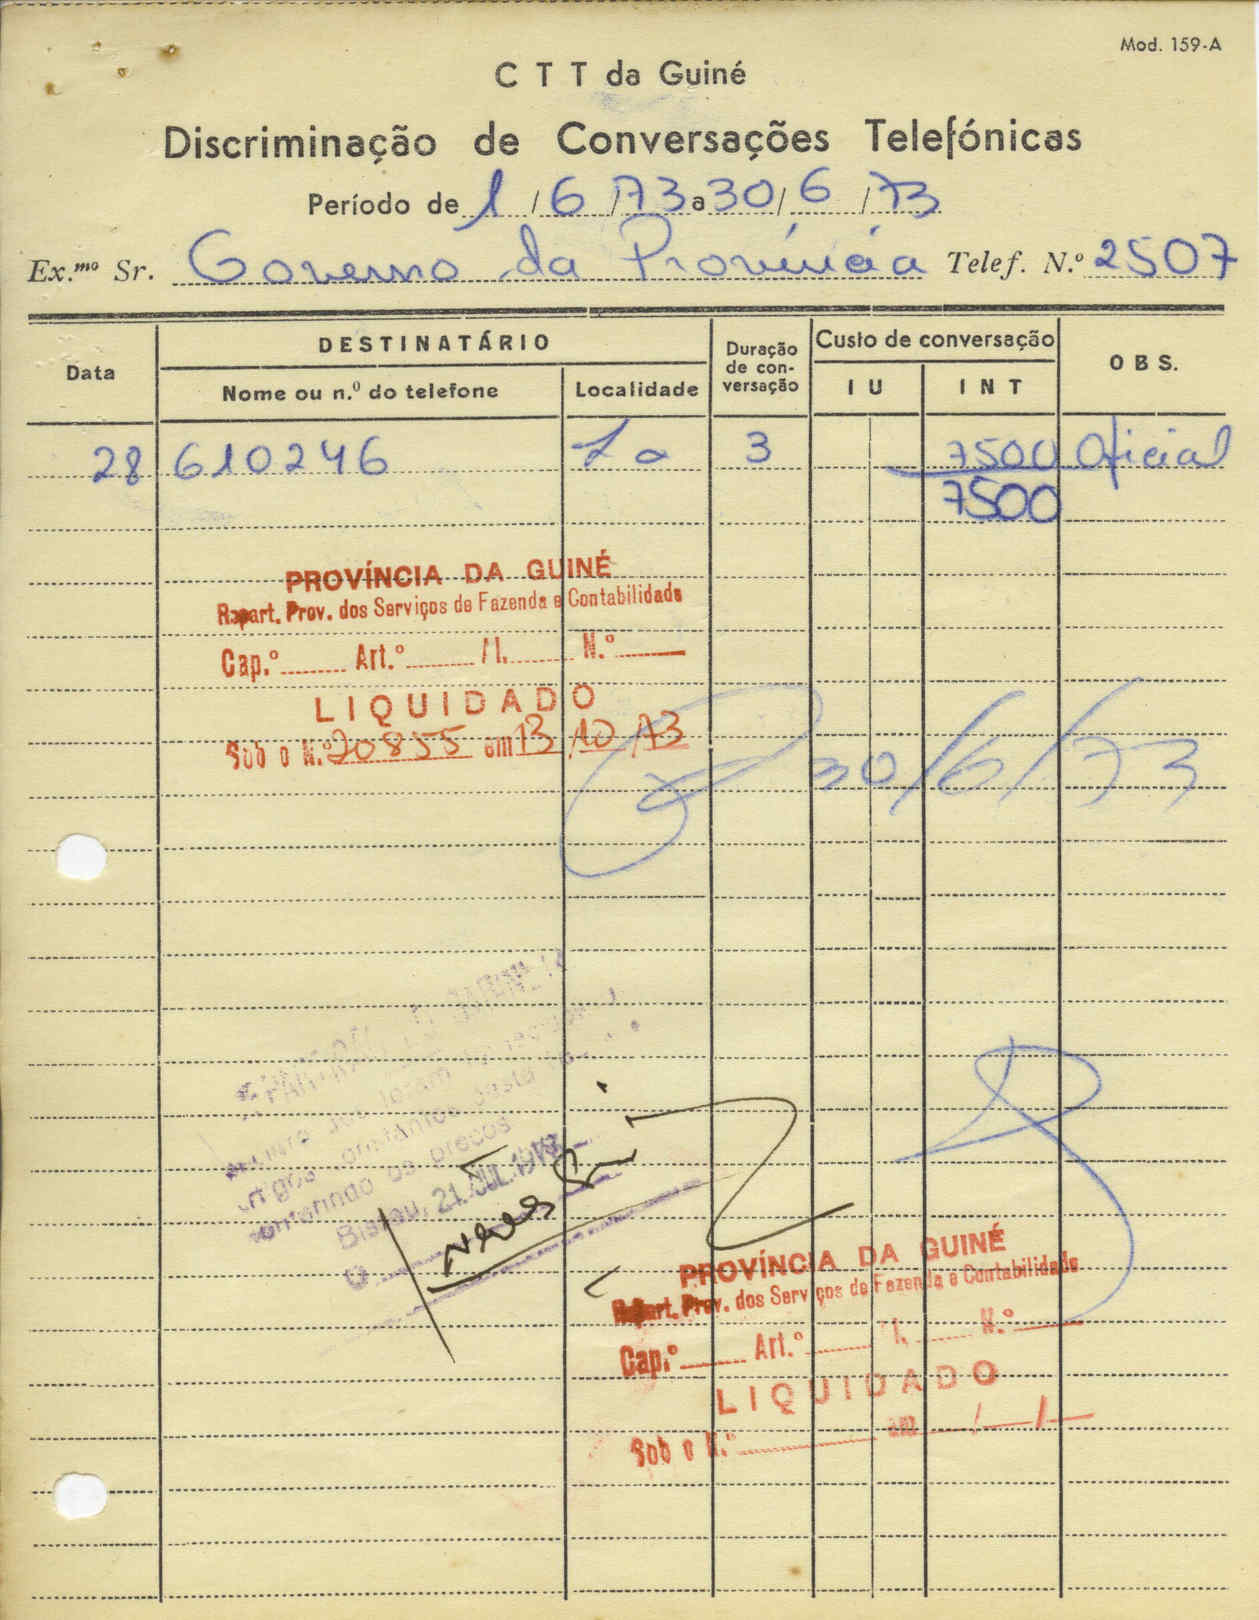 Mod. 159-A
C T T da Guiné
Discriminação de Conversações Telefónicas
Período de 1/6/73 a 30/6/73
Ex.mo Sr. Governo da Província Telef. N.º 2507
Data
DESTINATÁRIO
Nome ou n.º do telefone
Localidade
Duração de con-versação
Custo de conversação
I U
I N T
O B S.
28 610246 Lo 3 7500 Oficial
7500
PROVÍNCIA DA GUINÉ
Repart. Prov. dos Serviços de Fazenda e Contabilidade
Cap.º Art.º N.º
LIQUIDADO
Sob o N.º 20855 em 13/10/73
30/6/73
constantes desta
os preços
Bissau, 21 JUL. 1973
O
PROVÍNCIA DA GUINÉ
Repart. Prov. dos Serviços de Fazenda e Contabilidade
Cap.º Art.º N.º
LIQUIDADO
Sob o N.º em / /